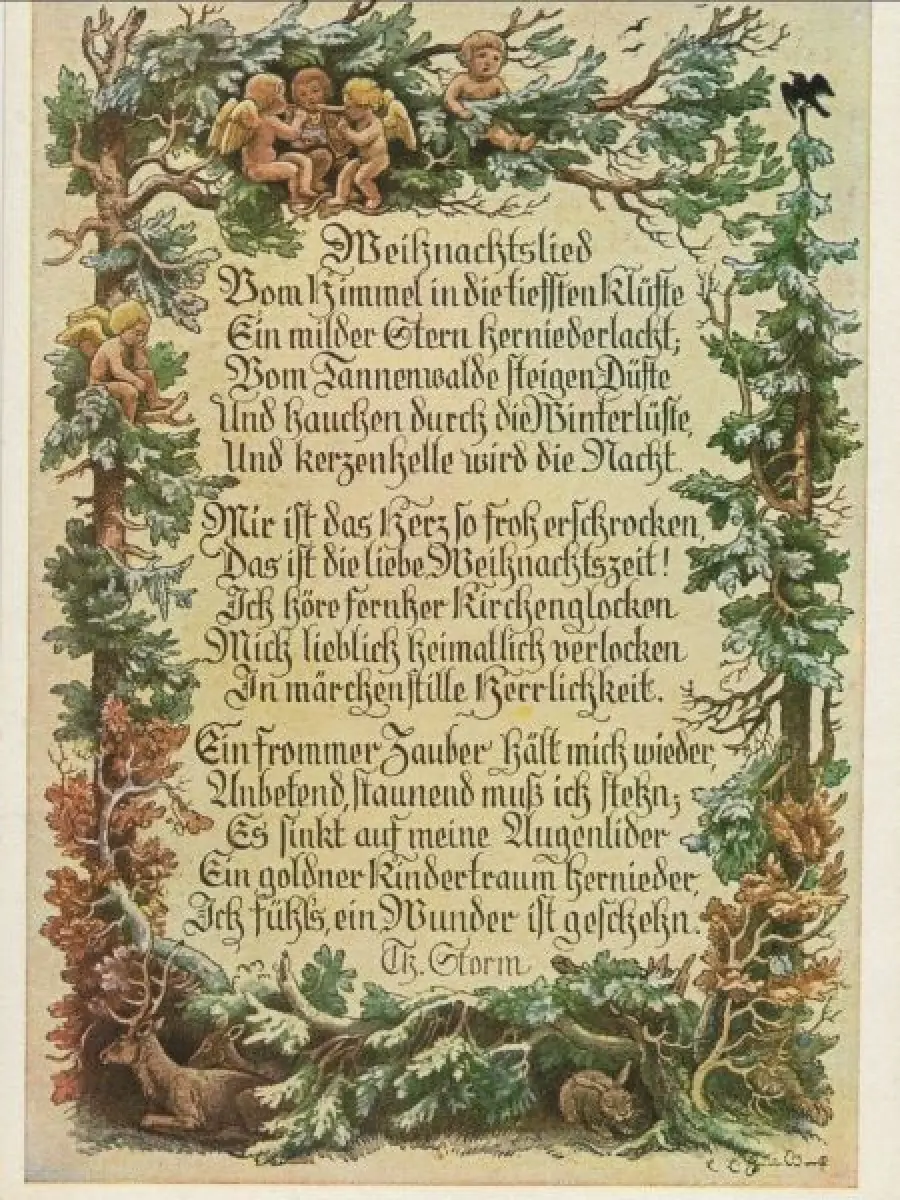 Weihnachtslied
Vom Himmel in die tiefsten Klüfte
Ein milder Stern herniederlacht;
Vom Tannenwalde steigen Düfte
Und hauchen durch die Winterlüfte,
Und kerzenhelle wird die Nacht.
Mir ist das Herz so froh erschrocken,
Das ist die liebe Weihnachtszeit!
Ich höre fernher Kirchenglocken
Mich lieblich heimatlich verlocken
In märchenstille Herrlichkeit.
Ein frommer Zauber hält mich wieder,
Anbetend, staunend muß ich stehn;
Es sinkt auf meine Augenlider
Ein goldner Kindertraum hernieder,
Ich fühl's, ein Wunder ist geschehn.
Th. Storm